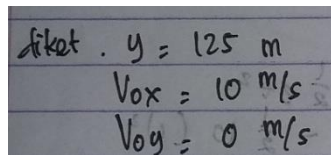 diket . y = 125 m
Vox = 10 m/s
Voy = 0 m/s